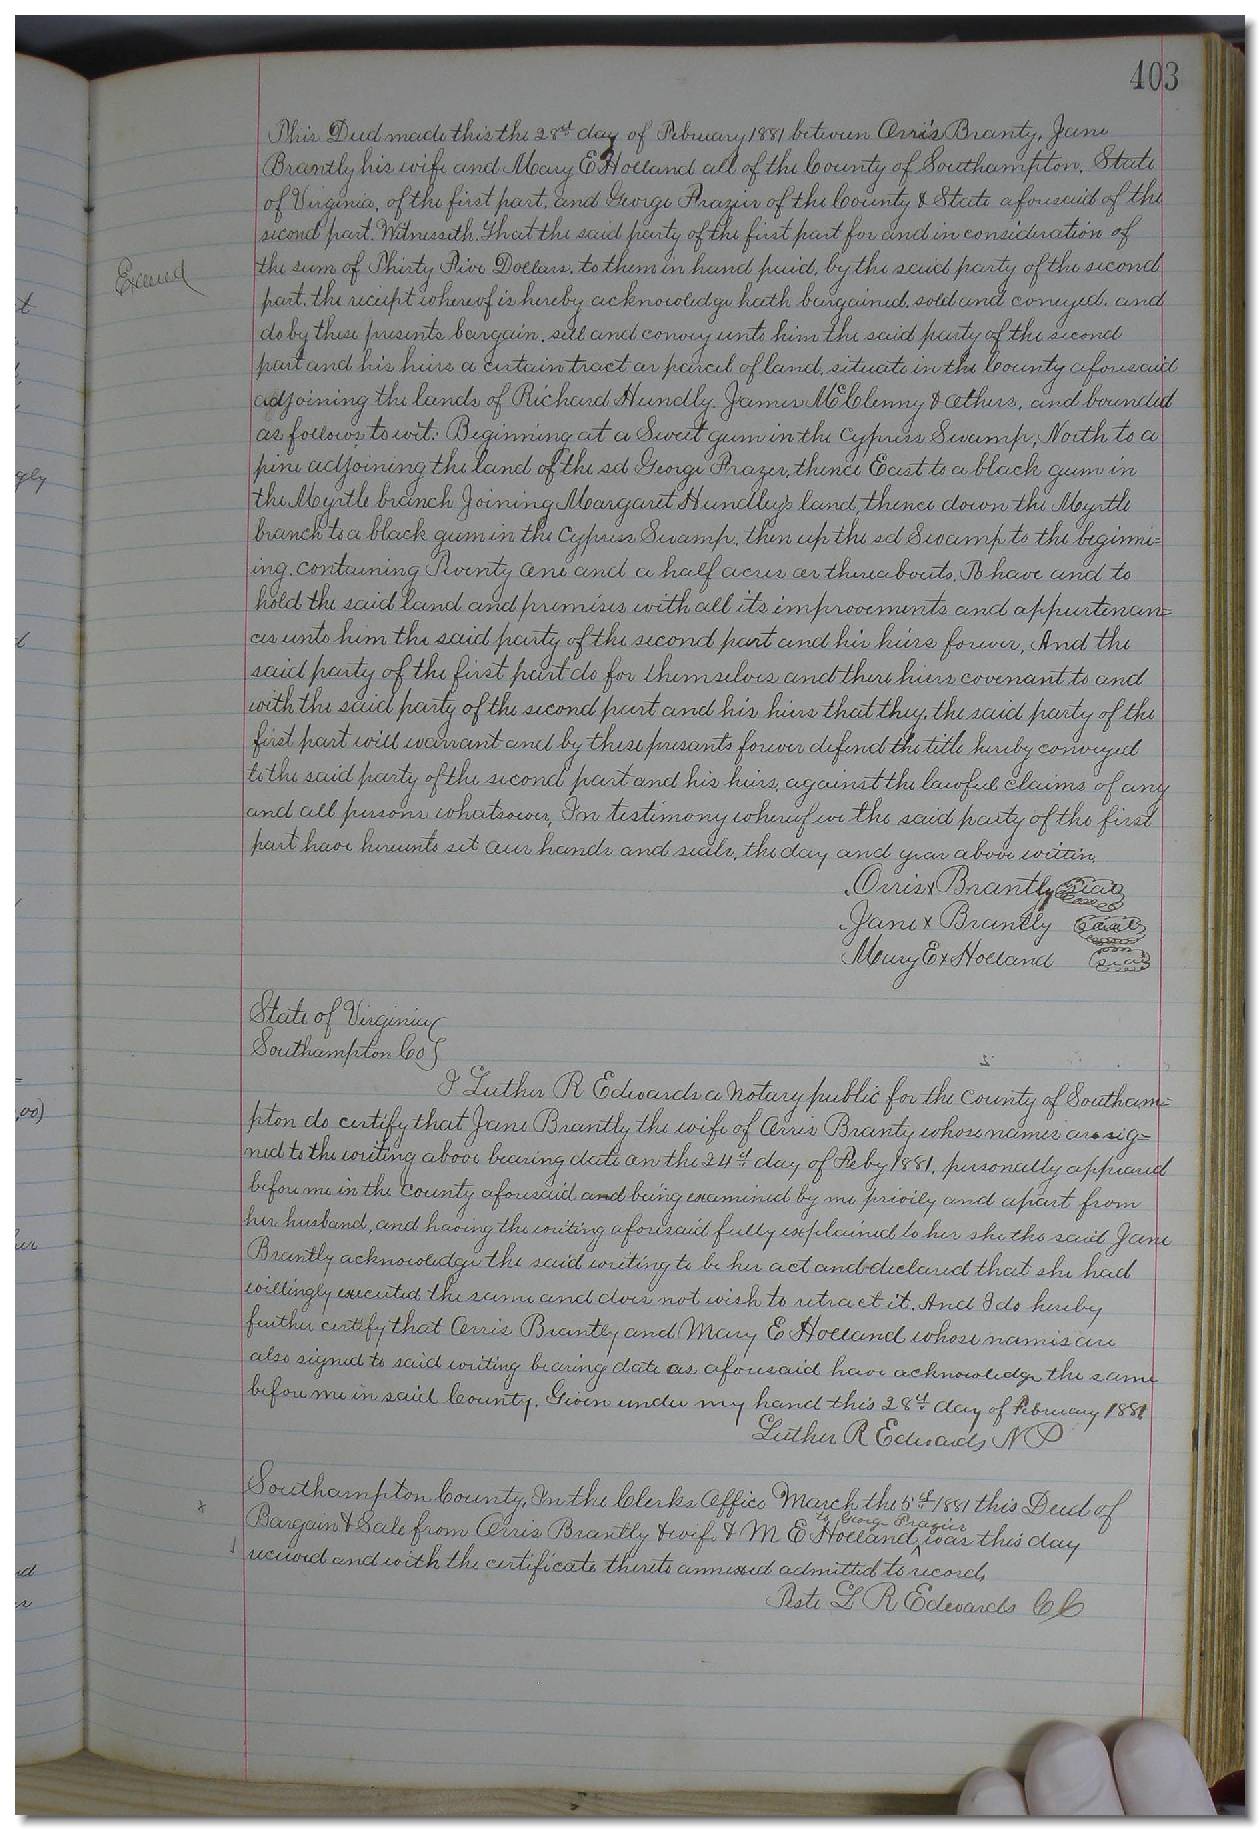 403
This Deed made this the 28th day of February 1881 between Orris Branty, Jane
Brantly his wife and Mary E Holland all of the County of Southampton, State
of Virginia, of the first part, and George Frazier of the County & State aforesaid of the
second part. Witnesseth. That the said party of the first part for and in consideration of
the sum of Thirty Five Dollars. to them in hand paid, by the said party of the second
part, the receipt whereof is hereby acknowledge hath bargained, sold and coneyed. and
do by these presents bargain, sell and convey unto him the said party of the second
part and his heirs a certain tract or parcel of land, situate in the County aforesaid
adjoining the lands of Richard Hundly James McClenny & others, and bounded
as follows to wit: Beginning at a Sweet gum in the Cypress Swamp; North to a
pine adjoining the land of the sd George Frazer, thence East to a black gum in
the Myrtle branch Joining Margaret Hundley's land, thence down the Myrtle
branch to a black gum in the Cypress Swamp, then up the sd Swamp to the beginni=
ing, containing Twenty One and a half acres or thereabouts. To have and to
hold the said land and premises with all its improvements and appurtenan=
ces unto him the said party of the second part and his heirs forever, And the
said party of the first part do for themselves and there heirs covenant to and
with the said party of the second part and his heirs that they, the said party of the
first part will warrant and by these presants forever defend the title hereby conveyed
to the said party of the second part and his heirs, against the lawful claims of any
and all persons whatsoever, In testimony whereof we the said party of the first
part have hereunto set our hands and seals, the day and year above written.
Orris x Brantly Seal
Jane x Brantly Seal
Mary E x Holland Seal
State of Virginia
Southampton Co
I Luther R Edwards a Notary public for the County of Southam=
pton do certify that Jane Brantly the wife of Orris Branty whose names are sig=
ned to the writing above bearing date on the 24th day of Feby 1881, personally appeared
before me in the County aforesaid and being examined by me privily and apart from
her husband, and having the writing aforesaid fully explained to her she the said Jane
Brantly acknowledge the said writing to be her act and declared that she had
willingly executed the same and does not wish to retract it. And I do hereby
further certify that Orris Brantly and Mary E Holland whose names are
also signed to said writing bearing date as aforesaid have acknowledge the same
before me in said County. Given under my hand this 28th day of February 1881
Luther R Edwards N P
Southampton County, In the Clerks Office March the 5th 1881 this Deed of
to George Frazier
Bargain & Sale from Orris Brantly & wife & M E Holland, was this day
received and with the certificate thereto annexed admitted to record,
Teste L R Edwards CC